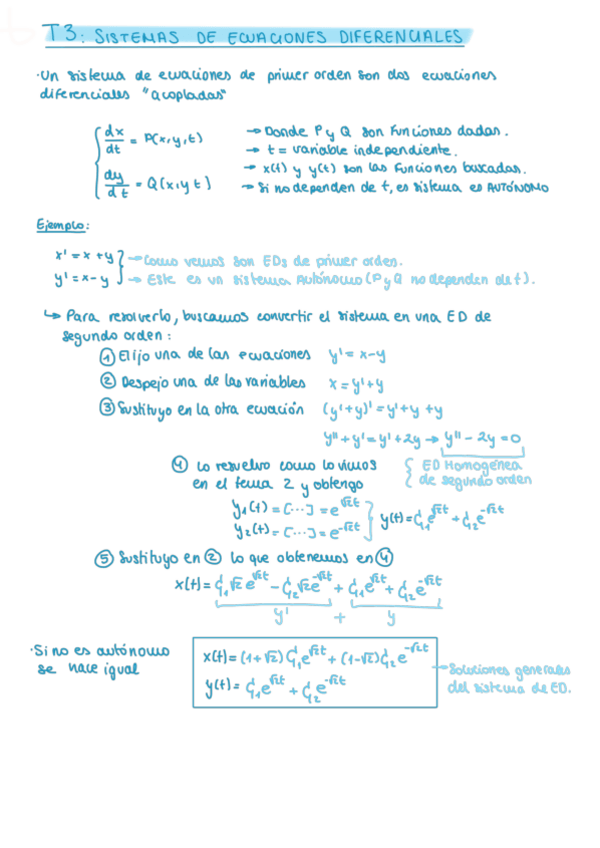 T3: SISTEMAS DE ECUACIONES DIFERENCIALES
·Un sistema de ecuaciones de primer orden son dos ecuaciones
diferenciales "Acopladas"
dx/dt = P(x,y,t) → Donde P y Q son funciones dadas.
→ t = variable independiente.
→ x(t) y y(t) son las funciones buscadas.
dy/dt = Q(x,y t) → Si no dependen de t, es sistema es AUTÓNOMO
Ejemplo:
x' = x + y → Como vemos son EDs de primer orden.
y' = x - y → Este es un sistema Autónomo (P y Q no dependen de t).
↳ Para resolverlo, buscamos convertir el sistema en una ED de
segundo orden:
① Elijo una de las ecuaciones y' = x - y
② Despejo una de las variables x = y' + y
③ Sustituyo en la otra ecuación (y' + y)' = y' + y + y
y'' + y' = y' + 2y → y'' - 2y = 0
④ Lo resuelvo como lo vimos
en el tema 2 y obtengo
ED Homogénea
de segundo orden
y₁(t) = [...] = e^√2t
y₂(t) = [...] = e^-√2t
y(t) = C₁e^√2t + C₂e^-√2t
⑤ Sustituyo en ② lo que obtenemos en ④
x(t) = C₁√2 e^√2t - C₂√2e^-√2t + C₁e^√2t + C₂e^-√2t
y' + y
·Si no es autónomo
se hace igual
x(t) = (1+√2) C₁e^√2t + (1-√2)C₂e^-√2t
y(t) = C₁e^√2t + C₂e^-√2t
→ Soluciones generales
del sistema de ED.